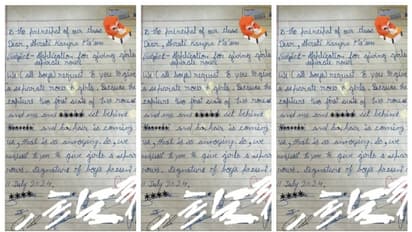 To the principal of our class
Dear, Shrati Kangra Ma'am
Subject - Application for giving girls
separate rows.
We (all boys) request to you to give
a separate rows girls, because the
capture two first side of two rows
and me and ***** sit behind
***** and her hair is coming
us, that is so annoying. So, we
request to you to give girls a separate
rows. Signature of boys present
11 July 2024,
To the principal of our class
Dear, Shrati Kangra Ma'am
Subject - Application for giving girls
separate rows.
We (all boys) request to you to give
a separate rows girls, because the
capture two first side of two rows
and me and ***** sit behind
***** and her hair is coming
us, that is so annoying. So, we
request to you to give girls a separate
rows. Signature of boys present
11 July 2024,
To the principal of our class
Dear, Shrati Kangra Ma'am
Subject - Application for giving girls
separate rows.
We (all boys) request to you to give
a separate rows girls, because the
capture two first side of two rows
and me and ***** sit behind
***** and her hair is coming
us, that is so annoying. So, we
request to you to give girls a separate
rows. Signature of boys present
11 July 2024,